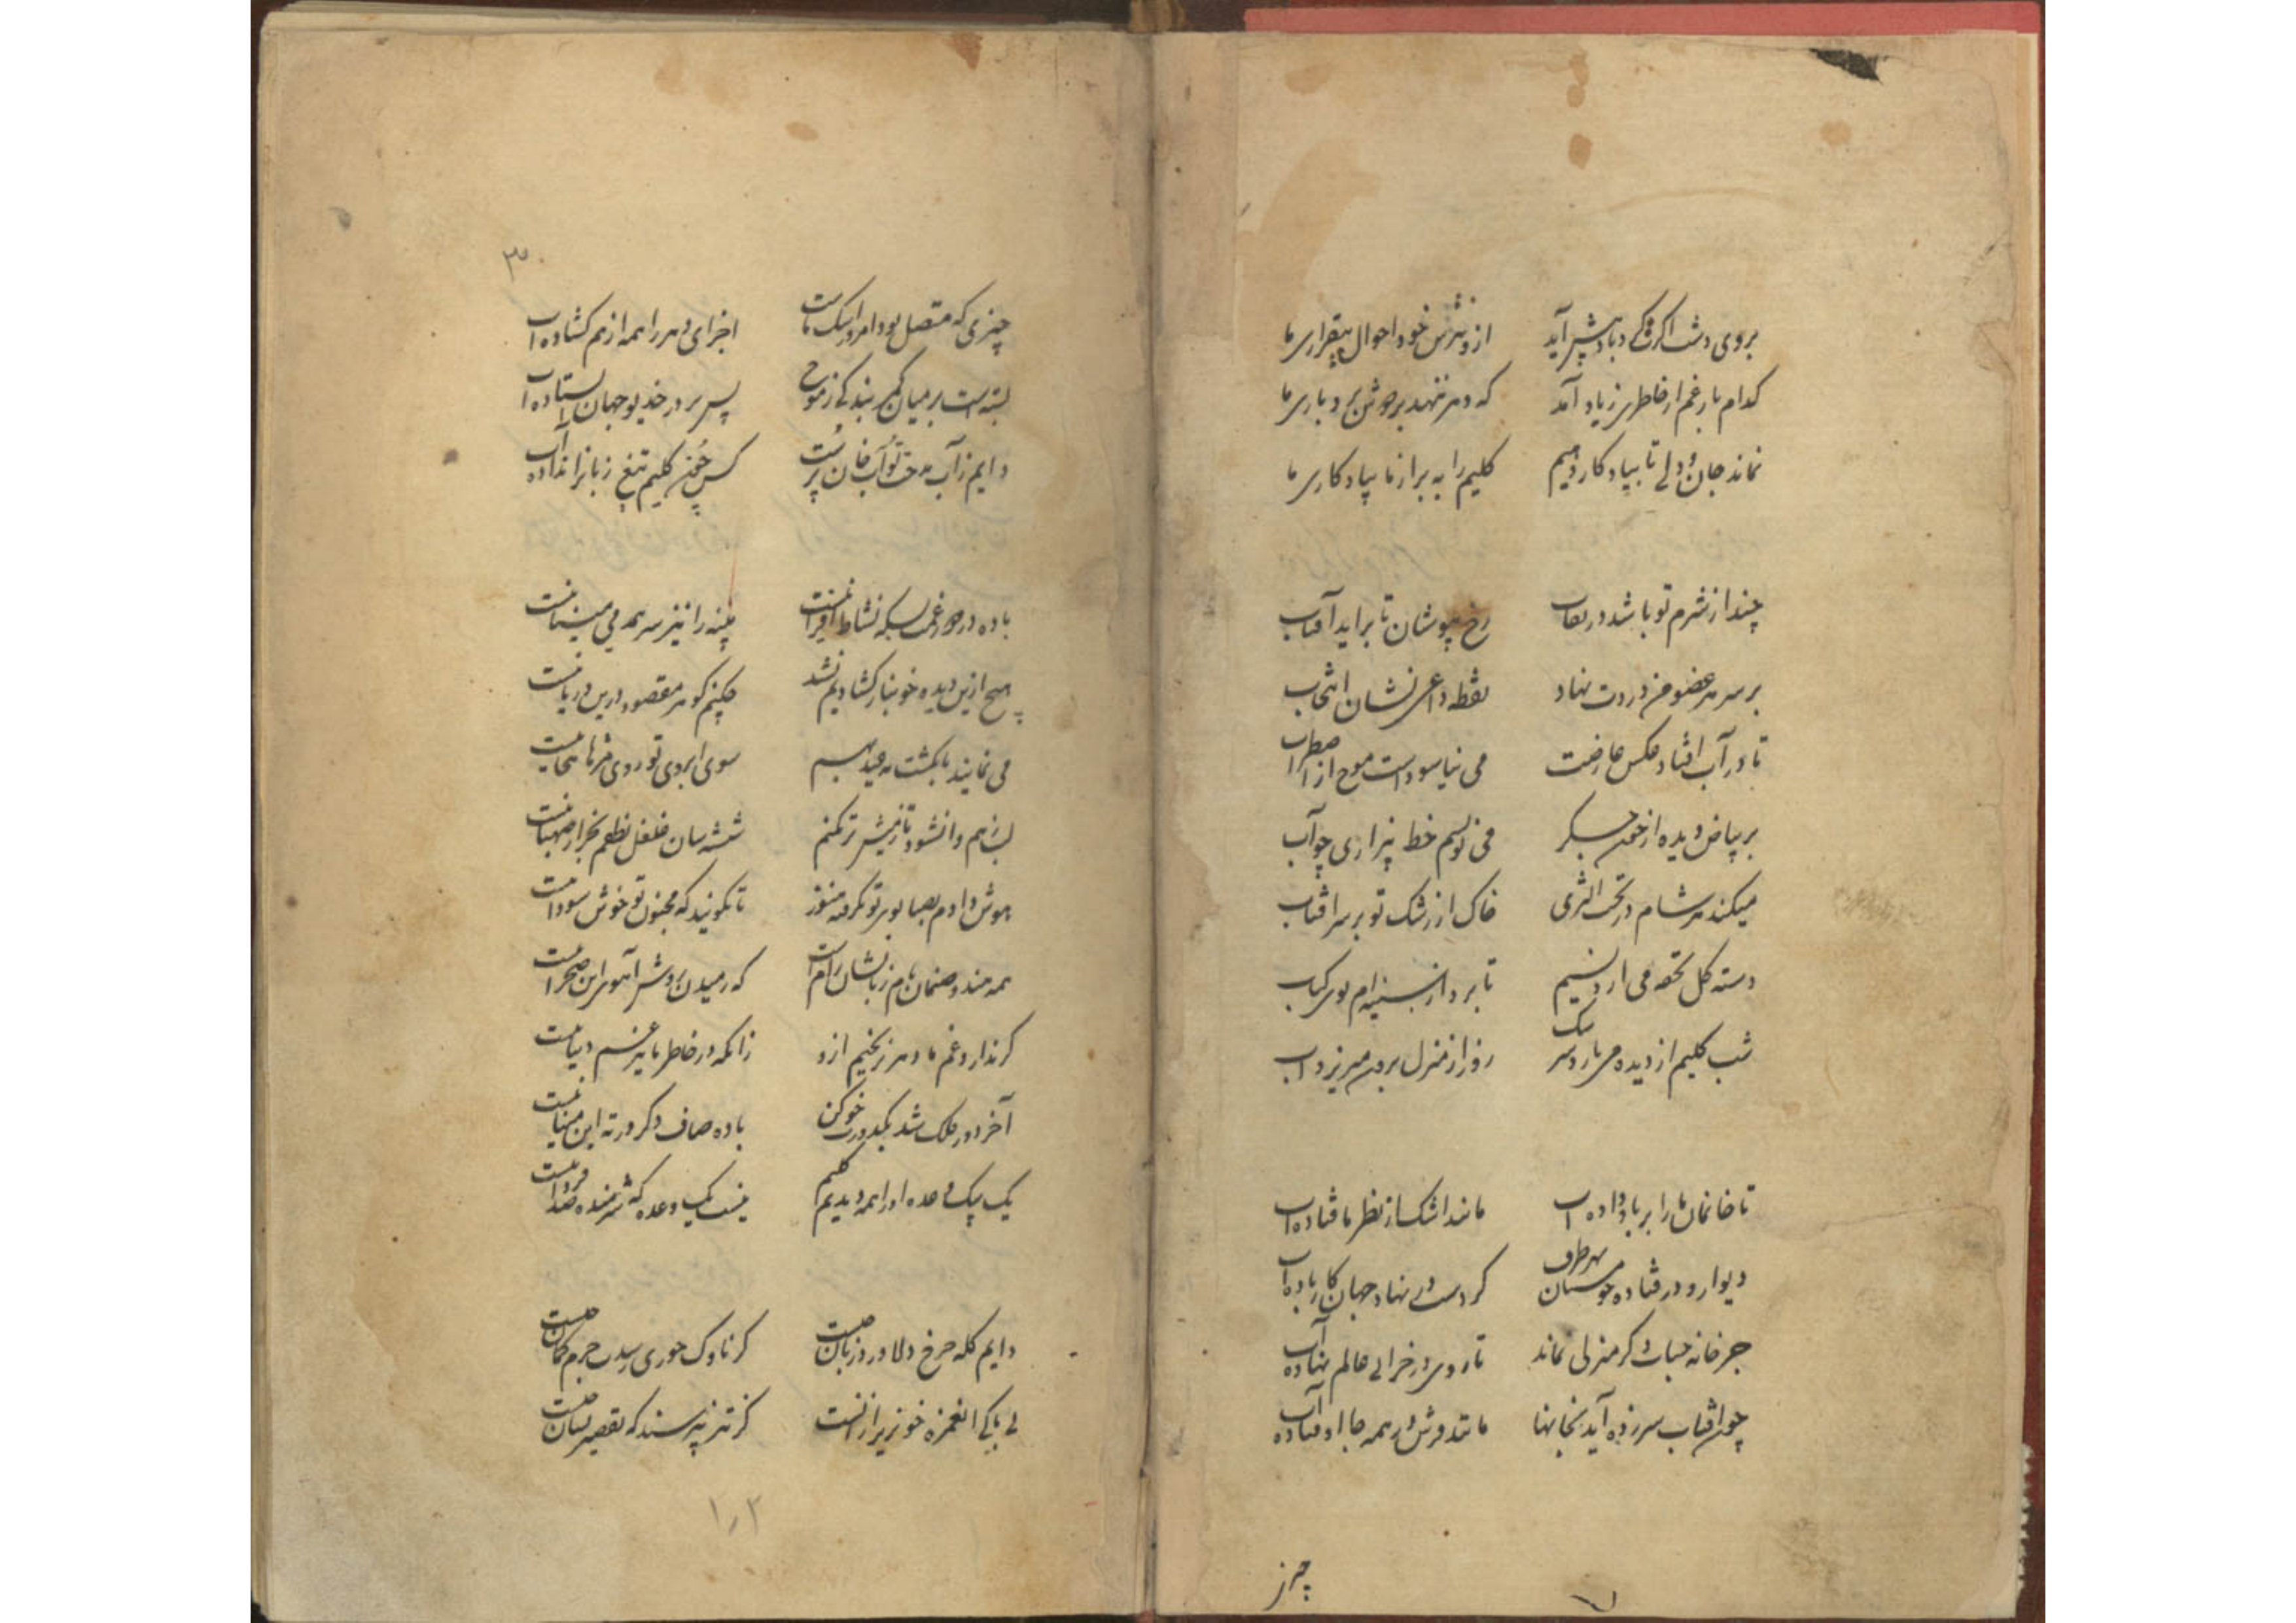 بروی دشت اگر گردباد پیش آید از و بپرس خود احوال بیقراری ما
کدام بار غم از خاطری زیاد آمد که دهر ننهد بر دوش بردباری ما
نماند جان و دلی تا بیادگار دهیم کلیم را ببر از ما بیادگاری ما
چند از شرم تو باشد در نقاب رخ بپوشان تا براید آفتاب
بر سر هر عضو من دردت نهاد نقطه داغی نشان انتخاب
تا در آب افتاد عکس عارضت می نیاسوداست موج از اضطراب
بر بیاض دیده از خون جگر می نویسم خط بیزاری چو آب
میکند هر شام در تحت الثری خاک از رشک تو بر سر افتاب
دسته گل تحفه می ارد نسیم تا برد از سینه ام بوی کباب
شب کلیم از دیده می بارد سرشک روز از منزل برون میریزد اب
تا خانمان ما را بر باد داده اب مانند اشک از نظر ما فتاده اب
دیوار و در فتاده چو مستان بهر طرف کردست در نهاد جهان کار باده اب
جز خانه حباب دگر منزلی نماند تا روی در خرابی عالم نهاده آب
چون افتاب سرزده آید بخانها مانند فرش در همه جا اوفتاده آب
چیزی
۳
چیزی که متصل بود امروز اشک ماست اجزای دهر را همه از هم گشاده اب
بسته است بر میان کمر بندگی ز موج پس بر در خدیو جهان ایستاده اب
دایم ز آب مدحت نواب خان پرست کس چون کلیم تیغ زبانرا نداده آب
باده در دور غمت بسکه نشاط افزا نیست پنبه را نیز سر همدمی مینا نیست
هیچ ازین دیده خونبار گشادیم نشد چکنم گوهر مقصود درین دریا نیست
می نمایند بانگشت مه عید بهم سوی ابروی تو روی مژه‌ها بیجا نیست
لب ز هم وا نشود تا ز میش تر نکنم شیشه سان غلغل نطقم بجز از صهبا نیست
هوش دادم بصبا بوی تو نگرفته هنوز تا نگویند که مجنون تو خوش سودا نیست
همه هندو صنمان نام زبانشان رام است که رمیدن روش آهوی این صحرا نیست
گر ندارد غم ما دهر نرنجیم ازو زانکه در خاطر ما نیز غم دنیا نیست
آخر دور فلک شد بکدورت خو کن باده صاف دگر در ته این مینا نیست
یک بیک وعده او را همه دیدیم کلیم نیست یک وعده که شرمنده صد فردا نیست
دایم گله چرخ دلا ورد زبان چیست گر ناوک جوری رسدت جرم کمان چیست
بی باکی ان غمزه خونریز ازانست کز تیر نپرسند که تقصیر نشان چیست